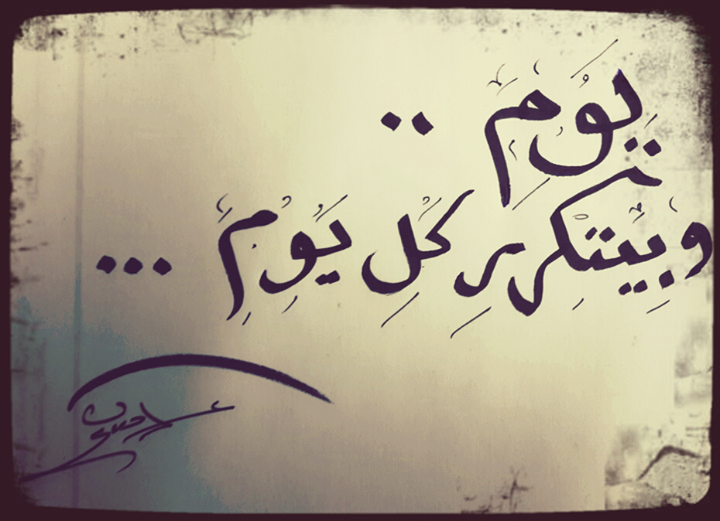 يوم ..
وبيتكرر كل يوم ...